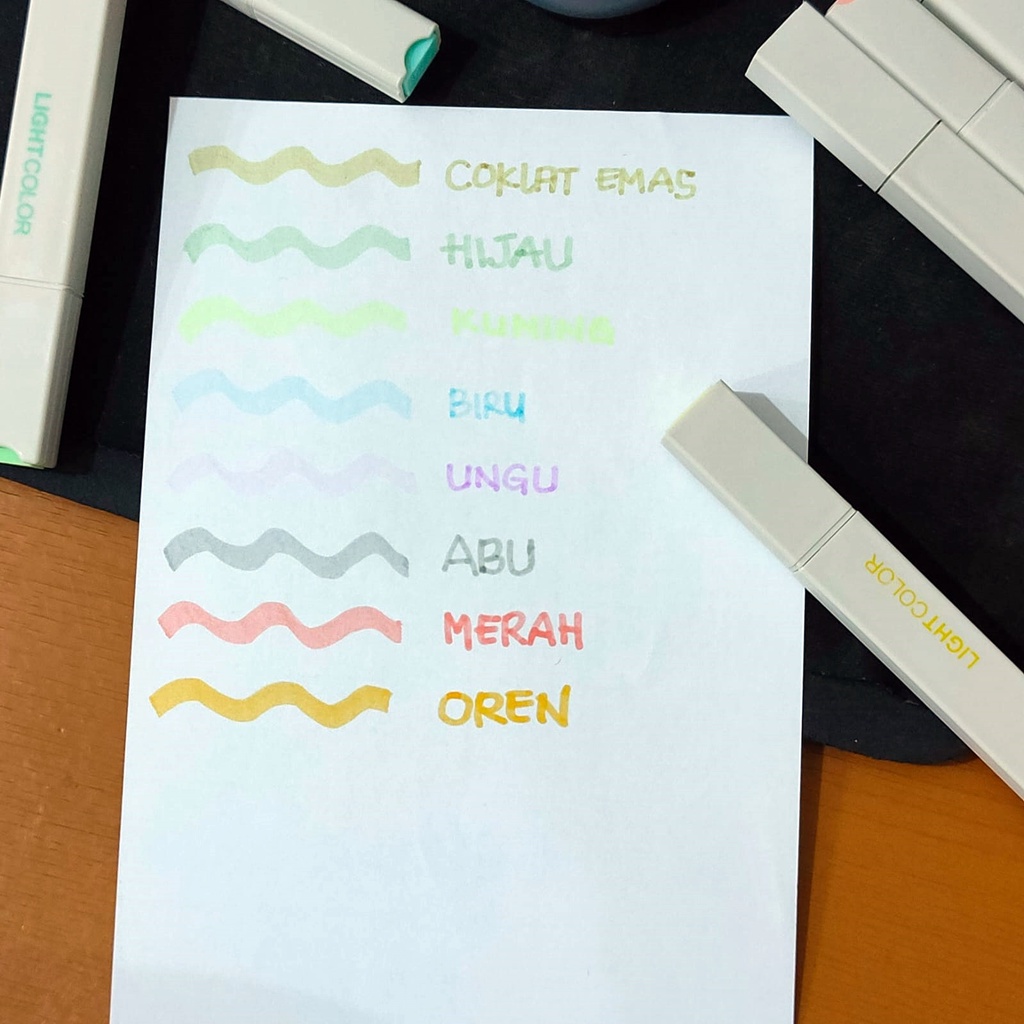 LIGHTCOLOR
COKLAT EMAS
HIJAU
KUNING
BIRU
UNGU
ABU
MERAH
OREN
LIGHTCOLOR